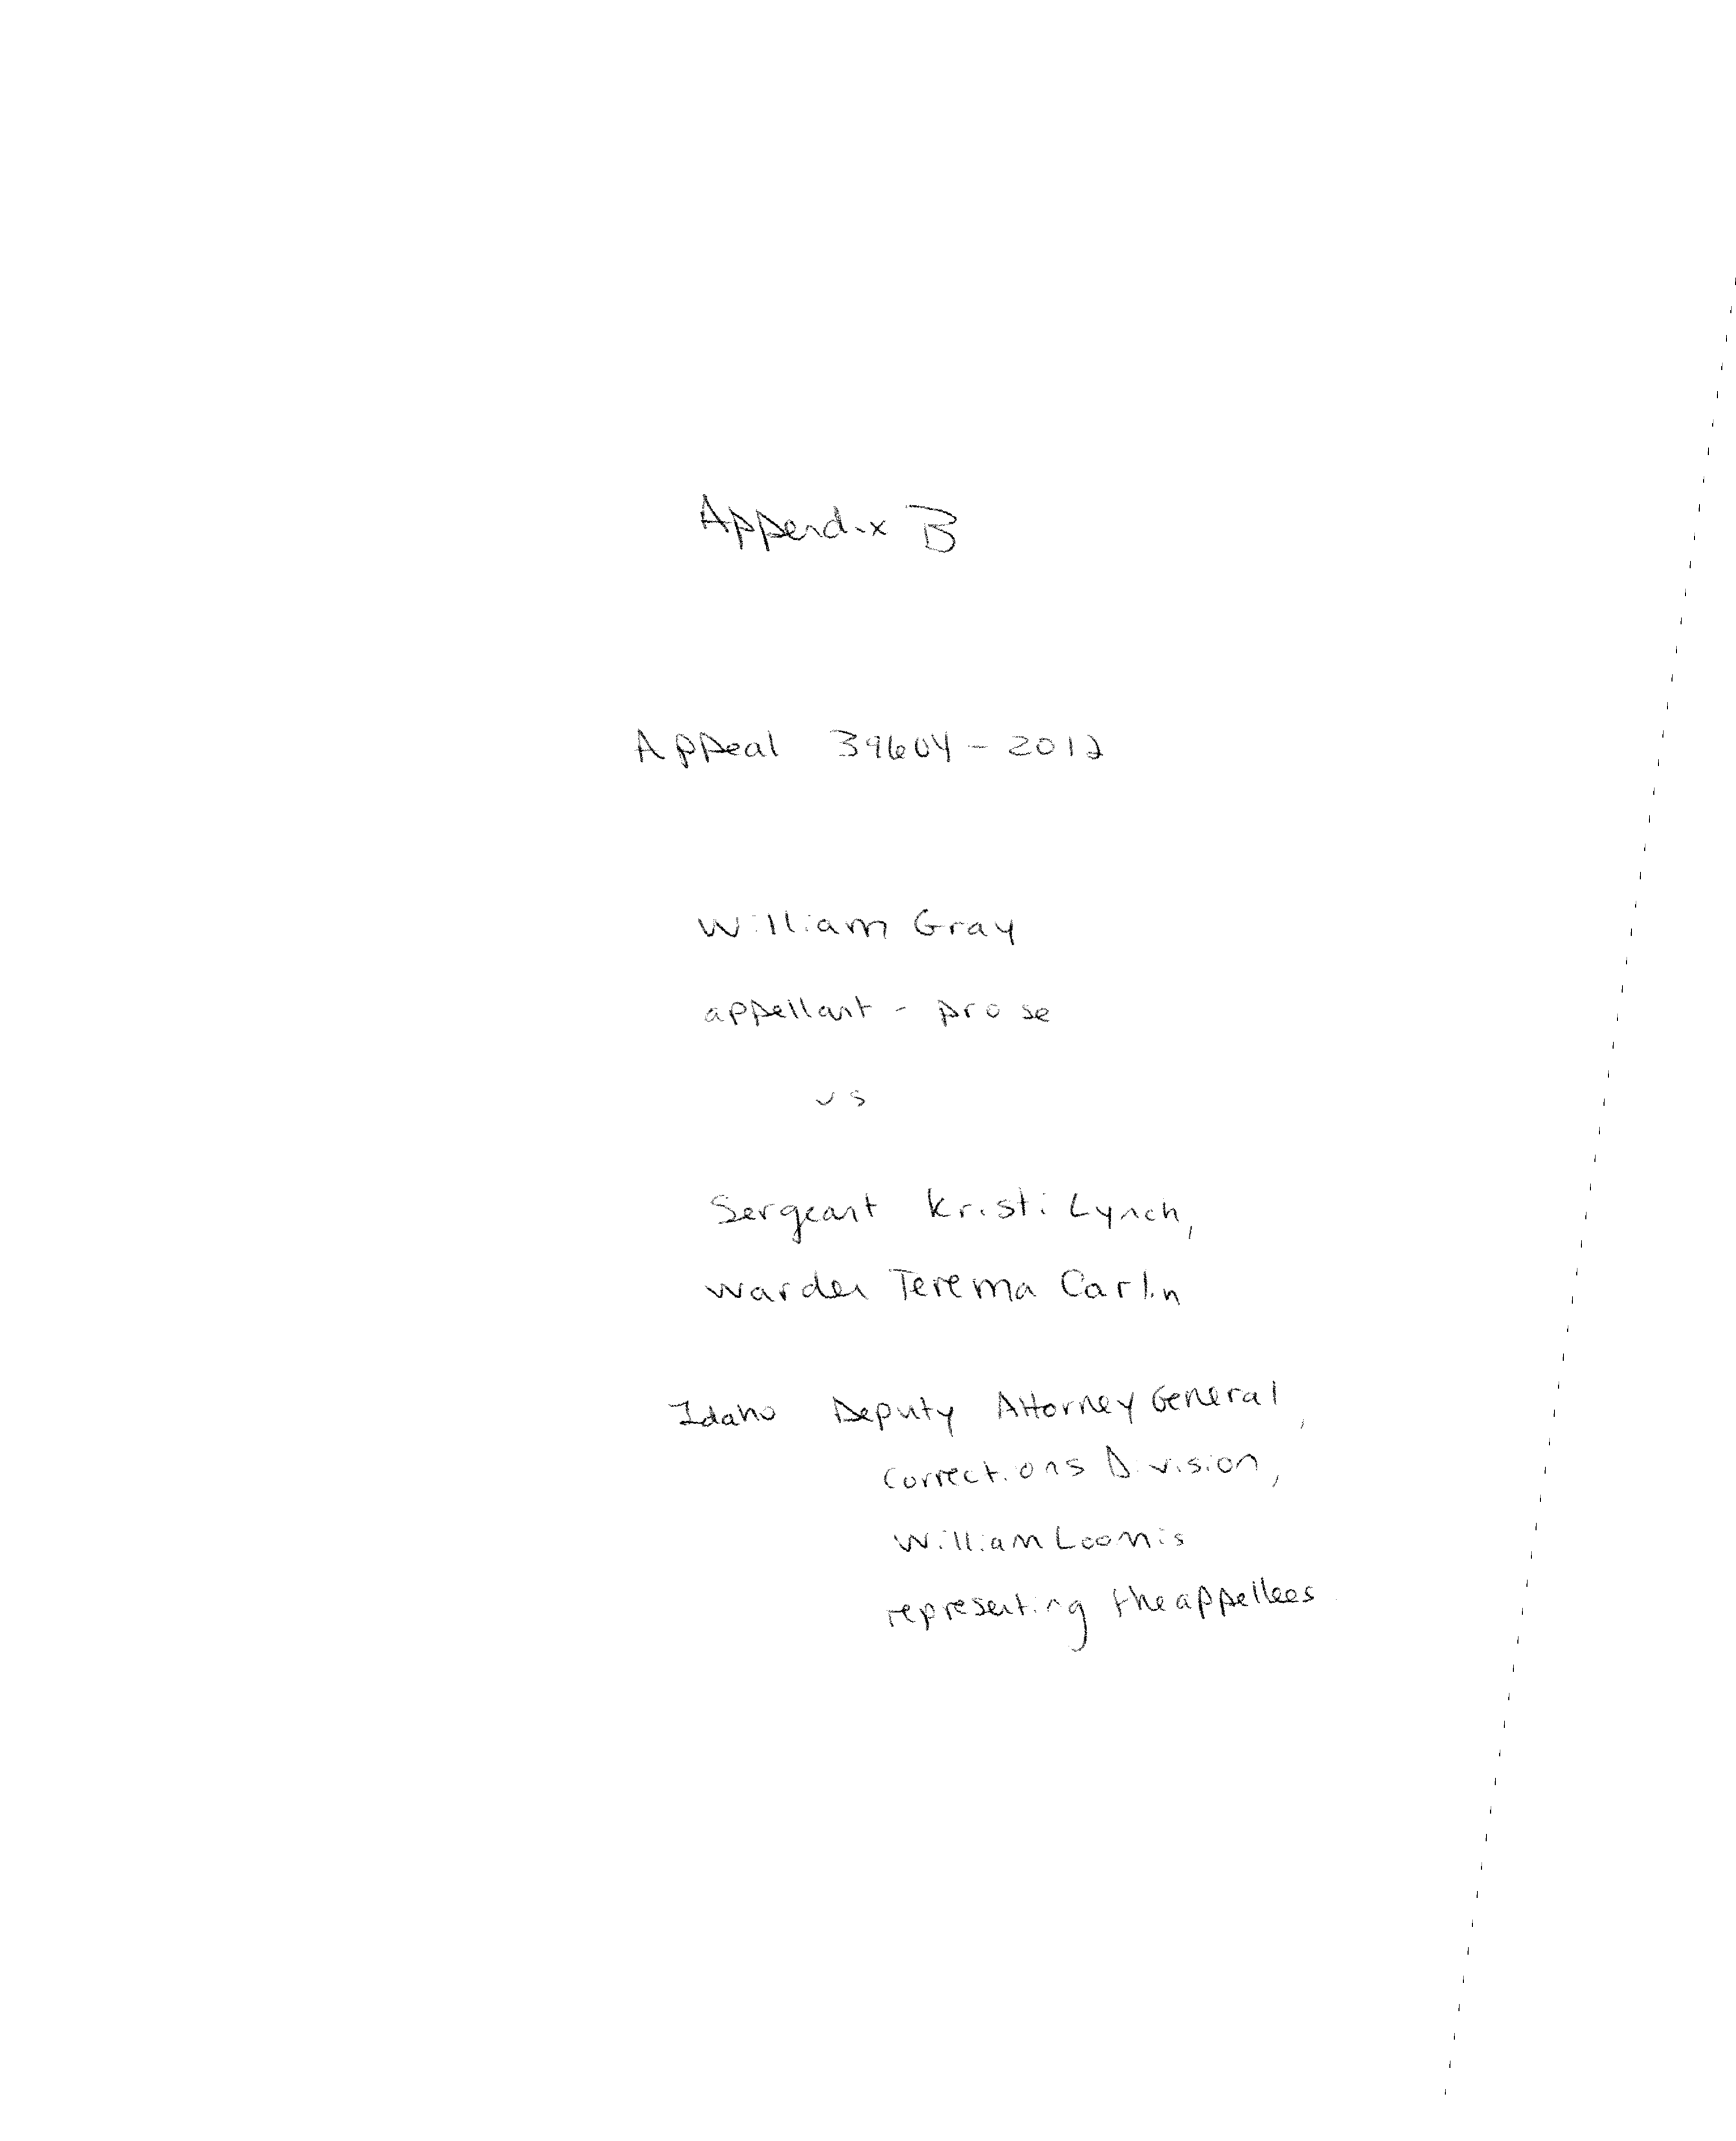 Appendix B
Appeal 39604-2012
William Gray
appellant - pro se
vs
Sergeant Kristi Lynch,
Warden Terema Carlin
Idaho Deputy Attorney General,
Corrections Division,
William Loomis
representing the appellees